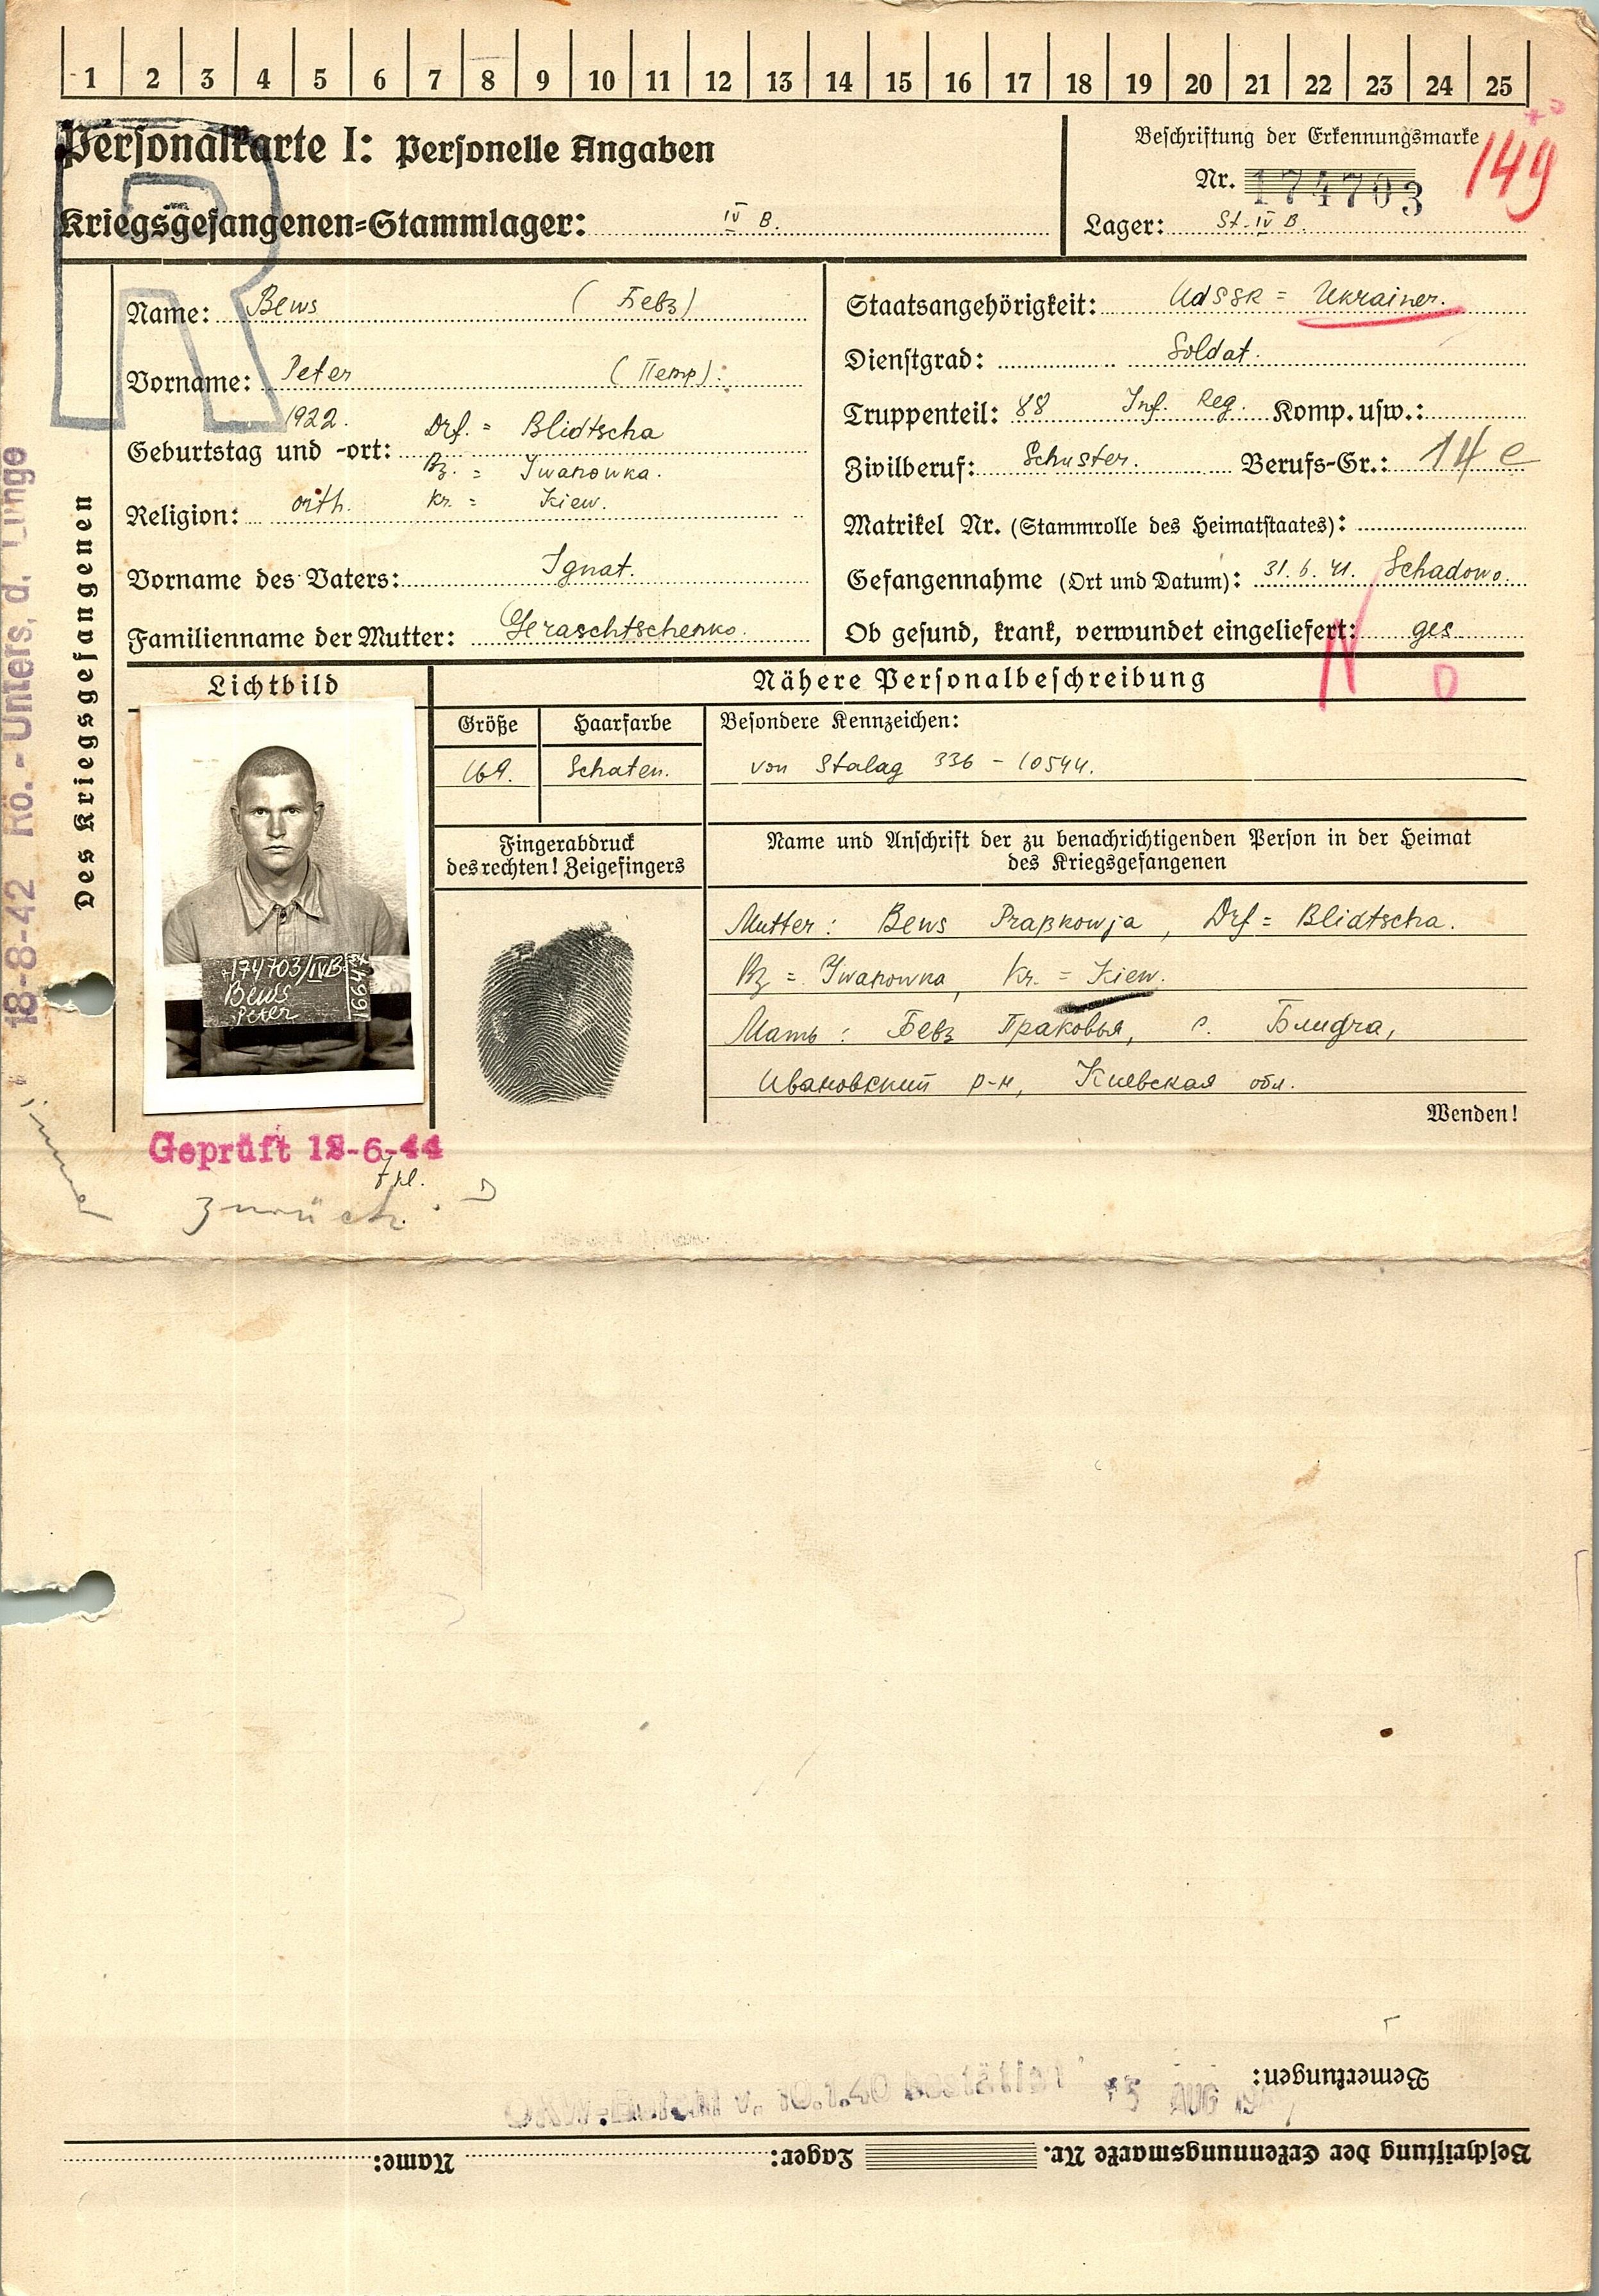 1 2 3 4 5 6 7 8 9 10 11 12 13 14 15 16 17 18 19 20 21 22 23 24 25
Personalkarte I: Personelle Angaben
Kriegsgefangenen=Stammlager: IV B.
Beschriftung der Erkennungsmarke
149
Nr. 174703
Lager: St. IV B.
Des Kriegsgefangenen
18-8-42 Rö.-Unters. d. Lunge
Name: Bews (Бевз)
Vorname: Peter (Петр).
1922. Drf. = Blidtscha
Geburtstag und -ort:
Bz. = Iwanowka.
Religion: orth. Kr. = Kiew.
Vorname des Vaters: Ignat.
Familienname der Mutter: Geraschtschenko.
Staatsangehörigkeit: UdSSR = Ukrainer.
Dienstgrad: Soldat.
Truppenteil: 88 Inf. Reg. Komp. usw.:
Zivilberuf: Schuster. Berufs-Gr.: 14 e
Matrikel Nr. (Stammrolle des Heimatstaates):
Gefangennahme (Ort und Datum): 31.6.41. Schadowo.
Ob gesund, krank, verwundet eingeliefert: ges
N
Lichtbild
Nähere Personalbeschreibung
Größe Haarfarbe Besondere Kennzeichen:
169. Schaten. von Stalag 336 - 10544.
Fingerabdruck
des rechten! Zeigefingers
Name und Anschrift der zu benachrichtigenden Person in der Heimat
des Kriegsgefangenen
Mutter: Bews Praßkowja, Drf = Blidtscha.
Bz = Iwanowka, Kr. = Kiew.
Мать: Бевз Праковья, с. Блидча,
Ивановский р-н, Киевская обл.
Wenden!
174703/IVB
Bews
Peter
Geprüft 12-6-44
zurück.
Bemerkungen:
OKW-Befehl v. 10.1.40 bestätigt 15 AUG
Beschriftung der Erkennungsmarke Nr. Lager: Name: